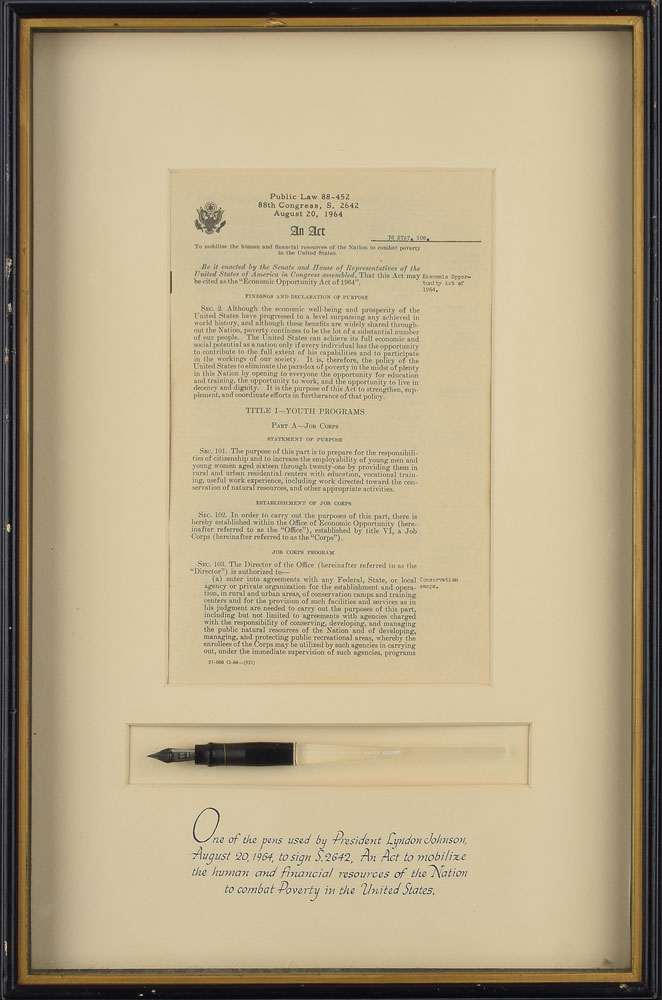 Public Law 88-452
88th Congress, S. 2642
August 20, 1964
An Act
78 STAT. 508.
To mobilize the human and financial resources of the Nation to combat poverty
in the United States.
Be it enacted by the Senate and House of Representatives of the
United States of America in Congress assembled, That this Act may
be cited as the "Economic Opportunity Act of 1964".
Economic Oppor-
tunity Act of
1964.
FINDINGS AND DECLARATION OF PURPOSE
SEC. 2. Although the economic well-being and prosperity of the
United States have progressed to a level surpassing any achieved in
world history, and although these benefits are widely shared through-
out the Nation, poverty continues to be the lot of a substantial number
of our people. The United States can achieve its full economic and
social potential as a nation only if every individual has the opportunity
to contribute to the full extent of his capabilities and to participate
in the workings of our society. It is, therefore, the policy of the
United States to eliminate the paradox of poverty in the midst of plenty
in this Nation by opening to everyone the opportunity for education
and training, the opportunity to work, and the opportunity to live in
decency and dignity. It is the purpose of this Act to strengthen, sup-
plement, and coordinate efforts in furtherance of that policy.
TITLE I—YOUTH PROGRAMS
PART A—JOB CORPS
STATEMENT OF PURPOSE
SEC. 101. The purpose of this part is to prepare for the responsibili-
ties of citizenship and to increase the employability of young men and
young women aged sixteen through twenty-one by providing them in
rural and urban residential centers with education, vocational train-
ing, useful work experience, including work directed toward the con-
servation of natural resources, and other appropriate activities.
ESTABLISHMENT OF JOB CORPS
SEC. 102. In order to carry out the purposes of this part, there is
hereby established within the Office of Economic Opportunity (here-
inafter referred to as the "Office"), established by title VI, a Job
Corps (hereinafter referred to as the "Corps").
JOB CORPS PROGRAM
SEC. 103. The Director of the Office (hereinafter referred to as the
"Director") is authorized to—
(a) enter into agreements with any Federal, State, or local
agency or private organization for the establishment and opera-
tion, in rural and urban areas, of conservation camps and training
centers and for the provision of such facilities and services as in
his judgment are needed to carry out the purposes of this part,
including but not limited to agreements with agencies charged
with the responsibility of conserving, developing, and managing
the public natural resources of the Nation and of developing,
managing, and protecting public recreational areas, whereby the
enrollees of the Corps may be utilized by such agencies in carrying
out, under the immediate supervision of such agencies, programs
Conservation
camps.
37-068 O-64—(571)
WHITE HOUSE
One of the pens used by President Lyndon Johnson,
August 20, 1964, to sign S.2642, An Act to mobilize
the human and financial resources of the Nation
to combat Poverty in the United States.